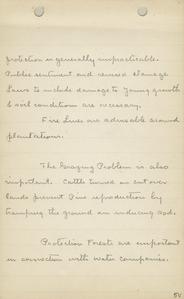 protection is generally impracticable.
Public sentiment and revised damage
Laws to include damage to young growth
& soil conditions are necessary.
Fire Lines are advisable around
plantations.
The Grazing Problem is also
important. Cattle turned on cut over
lands prevent Pine reproduction by
tramping the ground an inducing sod.
Protection Forests are important
in connection with water companies.